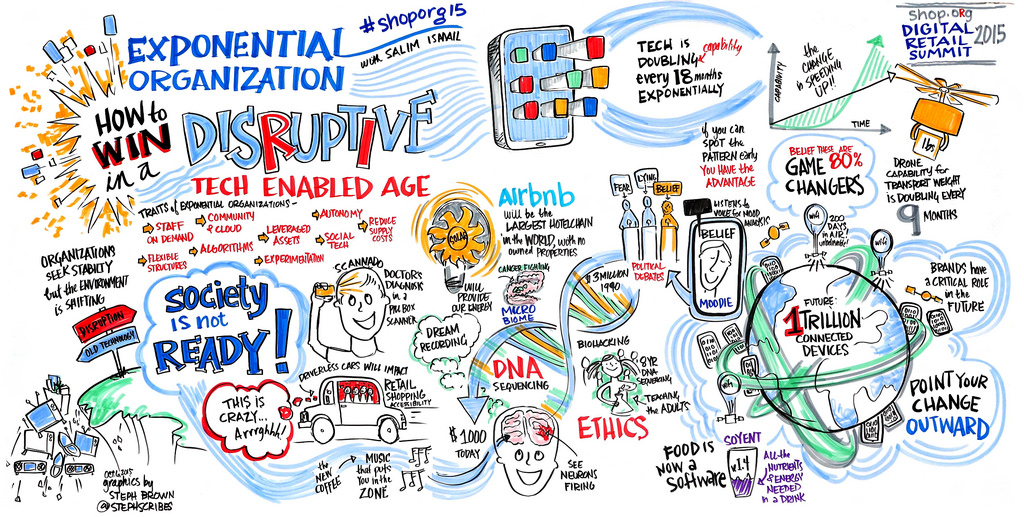 #shoporg15
EXPONENTIAL
ORGANIZATION
with SALIM ISMAIL
HOW to
WIN
in a
DISRUPTIVE
TECH ENABLED AGE
TECH is
DOUBLING capability
every 18 months
EXPONENTIALLY
CAPABILITY
the
CHANGE
is SPEEDING
UP!!
TIME
shop.org
DIGITAL
RETAIL
SUMMIT
2015
if you can
SPOT the
PATTERN early
YOU HAVE the
ADVANTAGE
BELIEF THESE ARE
GAME 80%
CHANGERS
1 lbs
DRONE
CAPABILITY for
TRANSPORT WEIGHT
is DOUBLING EVERY
9 MONTHS
TRAITS of EXPONENTIAL ORGANIZATIONS -
STAFF
ON DEMAND
COMMUNITY
& CLOUD
AUTONOMY
REDUCE
SUPPLY
COSTS
FLEXIBLE
STRUCTURES
ALGORITHMS
LEVERAGED
ASSETS
SOCIAL
TECH
EXPERIMENTATION
ORGANIZATIONS
SEEK STABILITY
but the ENVIRONMENT
is SHIFTING
DISRUPTION
OLD TECHNOLOGY
society
IS not
READY!
SCANNADO
DOCTOR'S
DIAGNOSIS
in a
PILL BOX
SCANNER
SOLAR
WILL
PROVIDE
OUR ENERGY
Airbnb
will be the
LARGEST HOTELCHAIN
in the WORLD, with no
owned PROPERTIES
CANCER FIGHTING
MICRO
BIOME
$3 MILLION
1990
FEAR
LYING
BELIEF
POLITICAL
DEBATES
LISTENS to
VOICE for MOOD
ANALYSIS
BELIEF
MOODIE
wifi
200
DAYS
in AIR!
wifi
BRANDS have
A CRITICAL ROLE
in the
FUTURE
FUTURE:
1 TRILLION
CONNECTED
DEVICES
wifi
POINT YOUR
CHANGE
OUTWARD
DREAM
RECORDING
DNA
SEQUENCING
$1,000
TODAY
BIOHACKING
8 YR
DNA
SEQUENCING
TEACHING
the ADULTS
ETHICS
SEE
NEURONS
FIRING
THIS IS
CRAZY...
Arrghhh!
DRIVERLESS CARS WILL IMPACT
RETAIL
SHOPPING
ACCESSIBILITY
the
NEW
COFFEE
MUSIC
that puts
You in the
ZONE
FOOD IS
NOW a
Software
SOYENT
v1.4
All the
NUTRIENTS
& ENERGY
NEEDED
in a DRINK
graphics by
STEPH BROWN
@STEPHSCRIBES